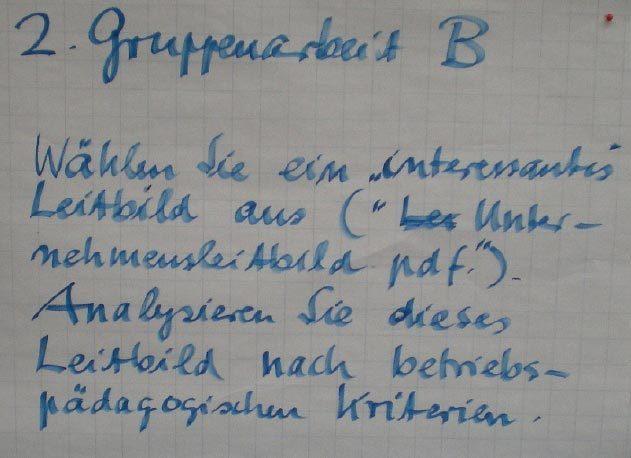 2. Gruppenarbeit B
Wählen Sie ein „interessantes"
Leitbild aus ("Unter-
nehmensleitbild pdf.").
Analysieren Sie dieses
Leitbild nach betriebs-
pädagogischen Kriterien.